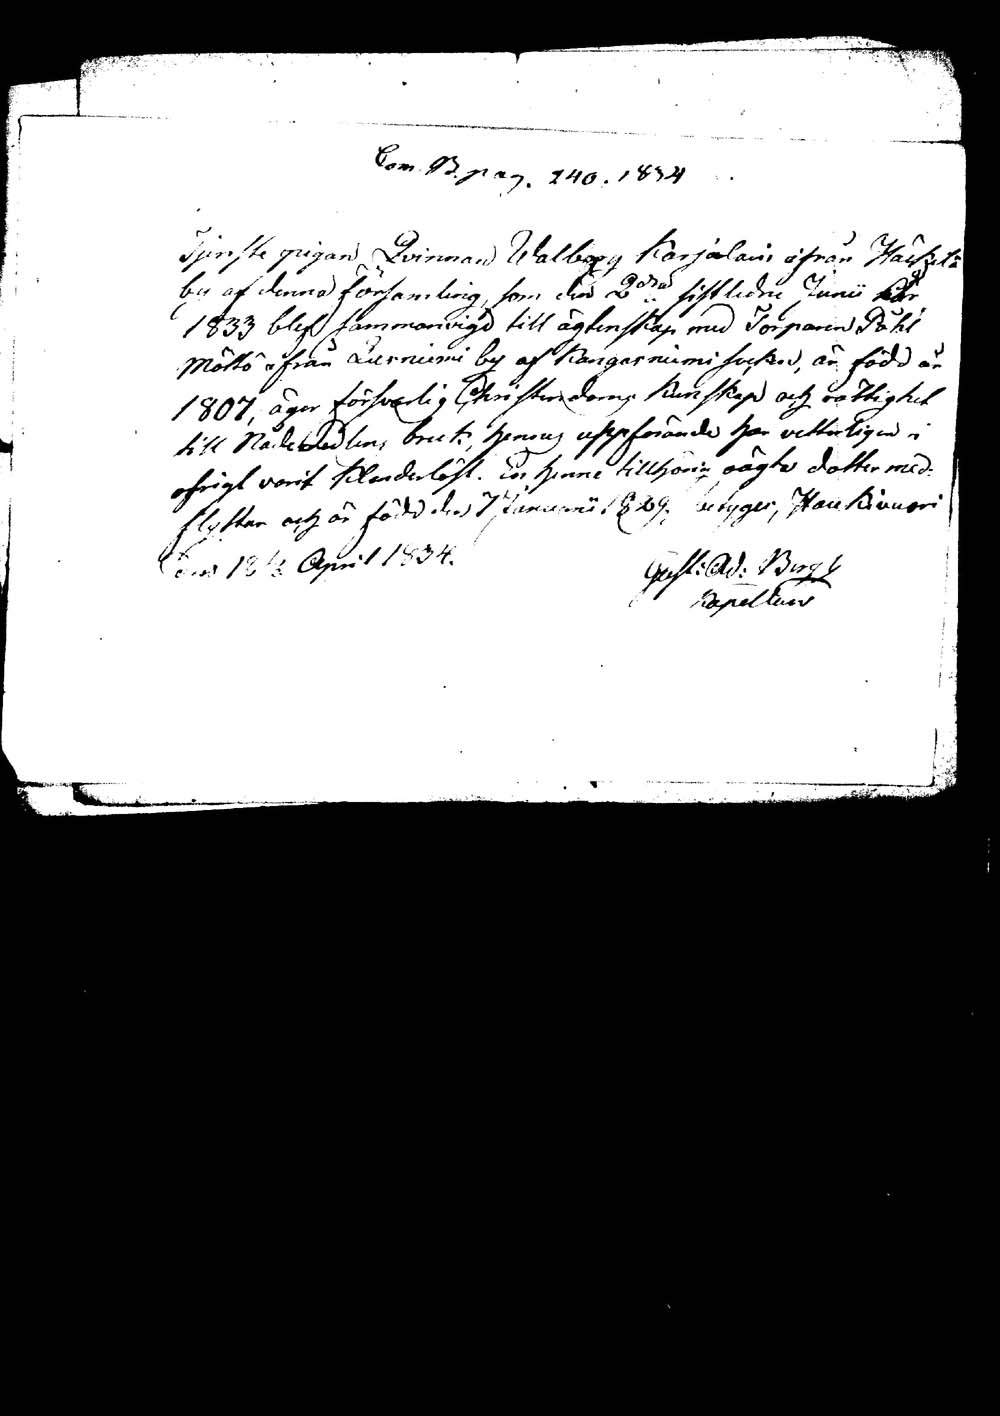 Com. B. pag. 240. 1834
Tjenste pigan Qvinnan Walborg Karjalain ifrån
by af denna Församling, som den 2dra sistledne Junii
1833 blef sammanvigd till ägtenskap med Torparen Påhl
Möttö ifrån Luusniemi by af Kangasniemi socken, är född år
1807, äger försvarlig Christendoms Kunskap och rättighet
till Nådemedlens bruk, hennes uppförande har vetterligen i
öfrigt varit klanderlöst. En henne tillhörig oägta dotter med-
flyttar och är född den 7 Januarii 1829, betygar, Haukivuori
den 18 April 1834.
Gust: Ad: Bergh
Kapellan